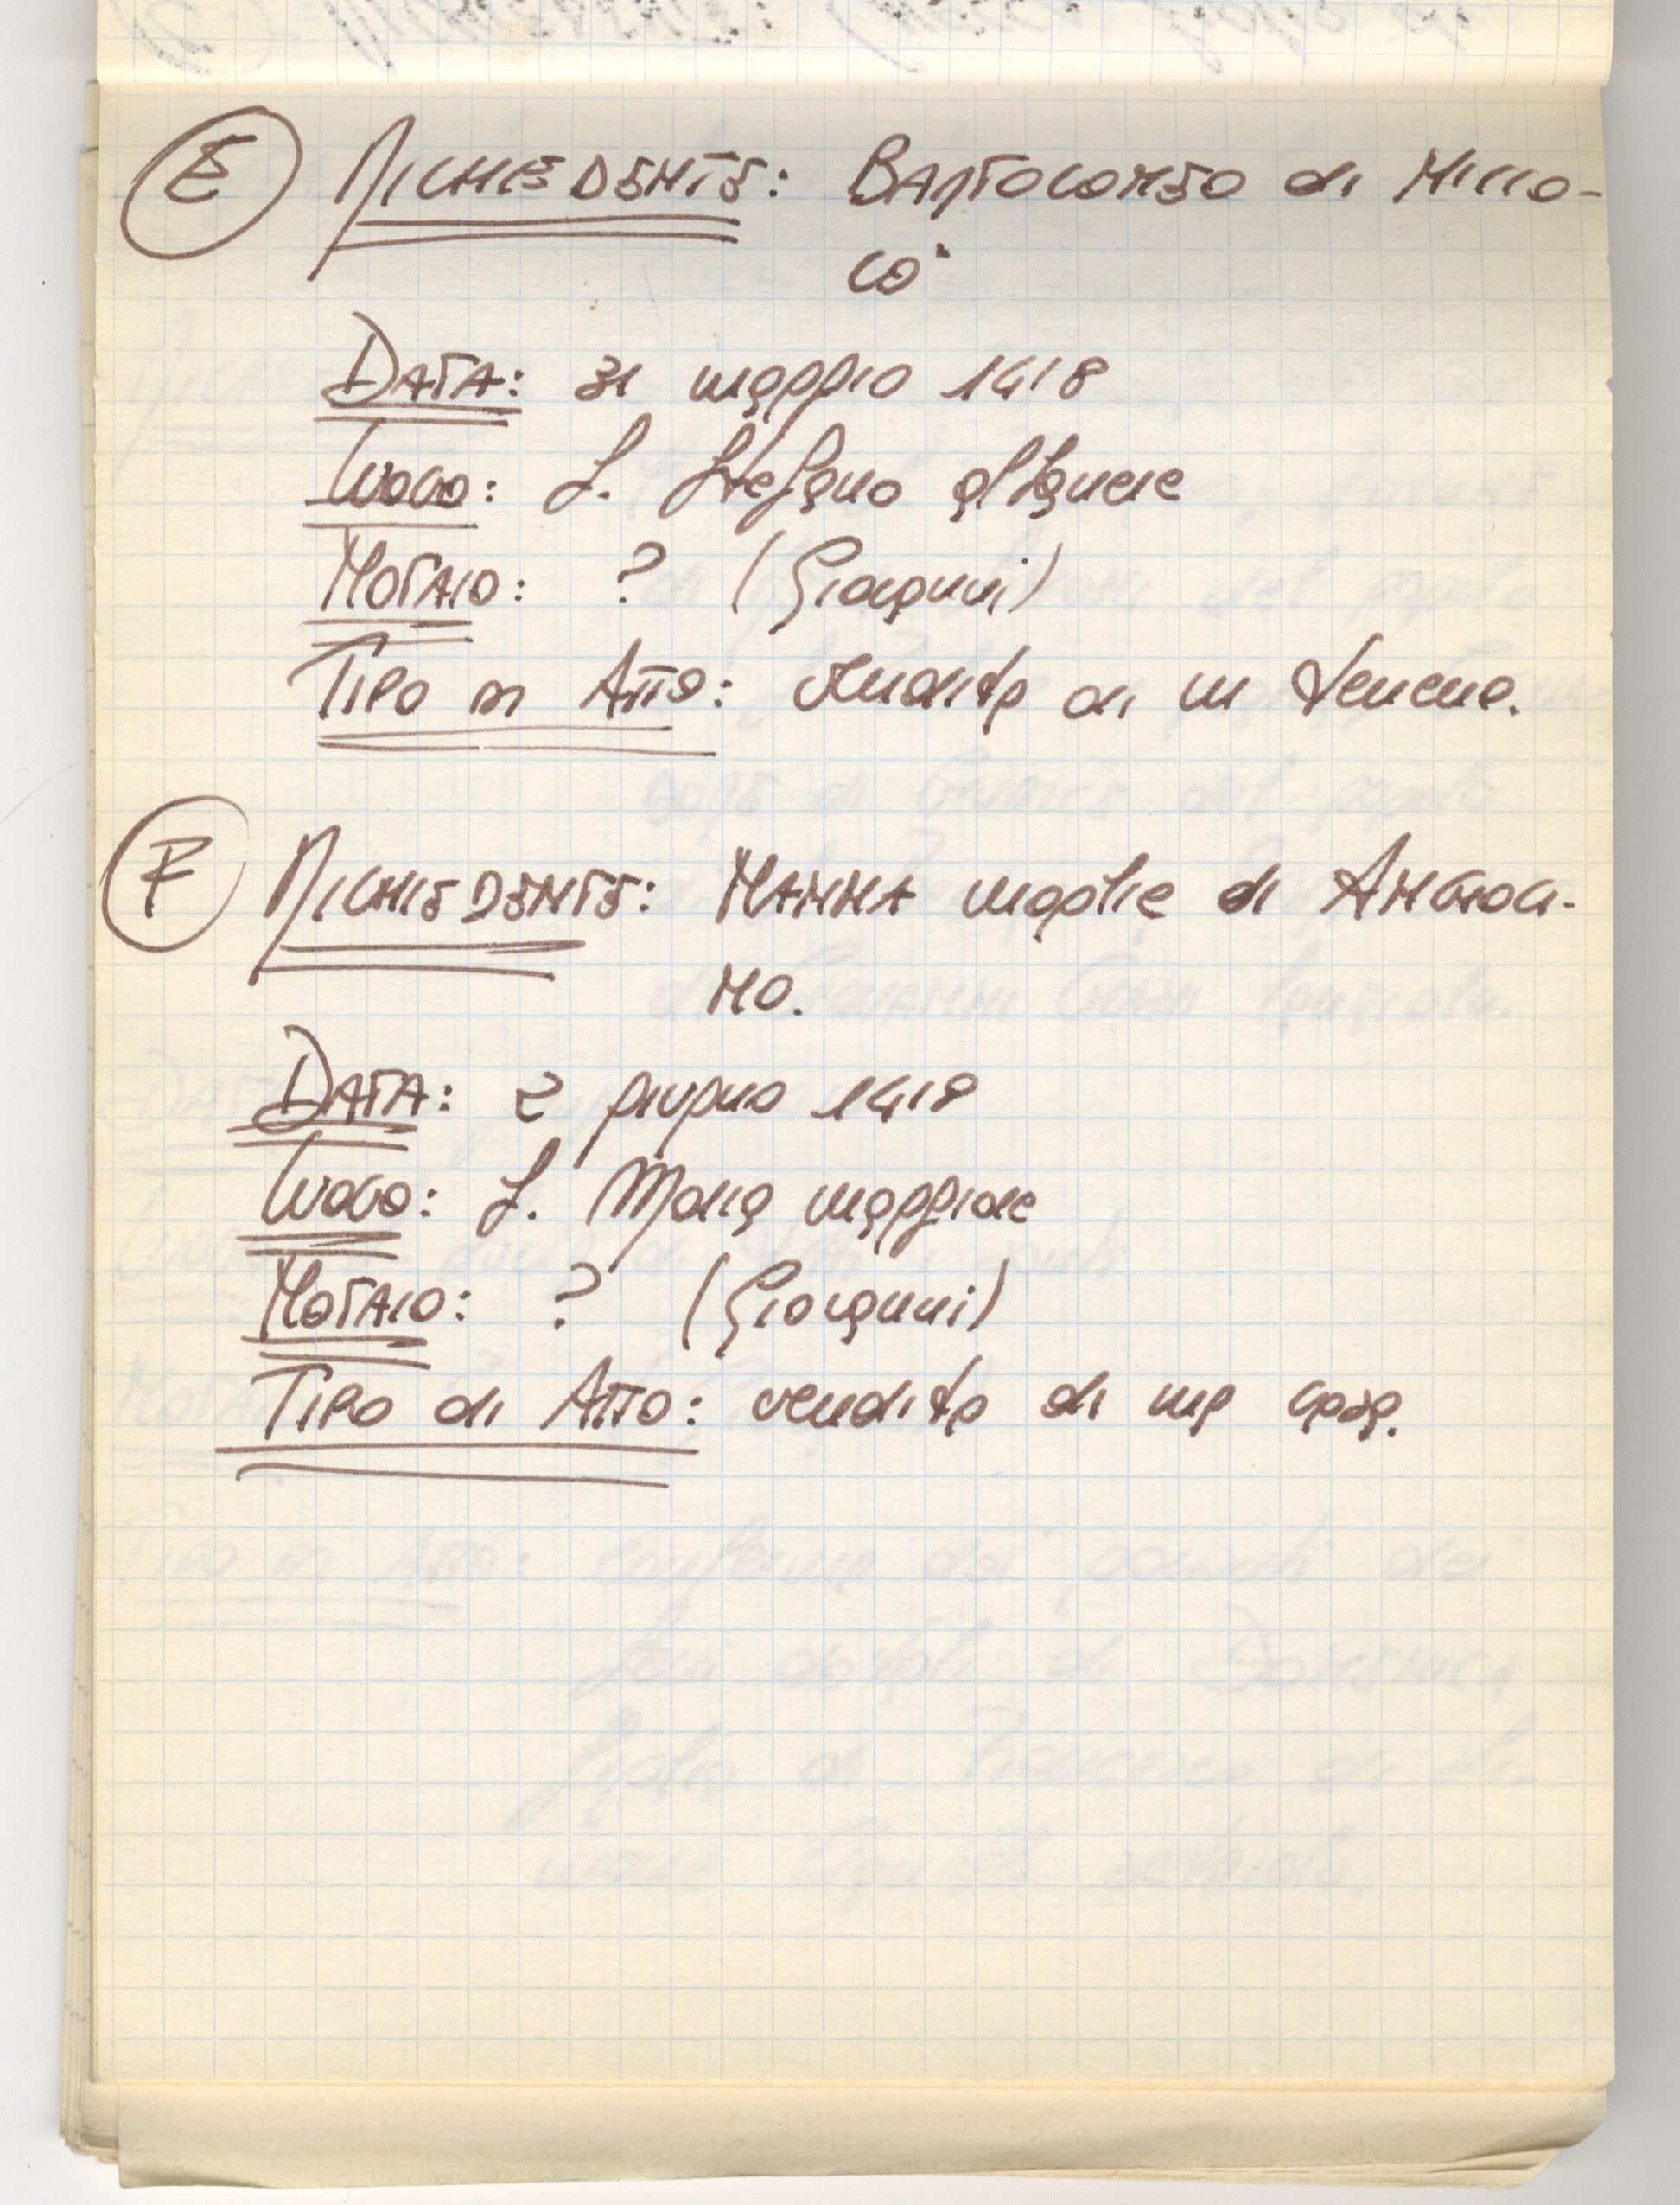 E RICHIEDENTE: BARTOLOMEO di NICCO-
LÒ
DATA: 31 maggio 1418
LUOGO: S. Stefano
NOTAIO: ? (Giovanni)
TIPO DI ATTO: vendita di un terreno.
F RICHIEDENTE: NANNA moglie di ANGIOLI-
NO.
DATA: 2 giugno 1418
LUOGO: S. Maria maggiore
NOTAIO: ? (Giovanni)
TIPO di ATTO: vendita di una casa.